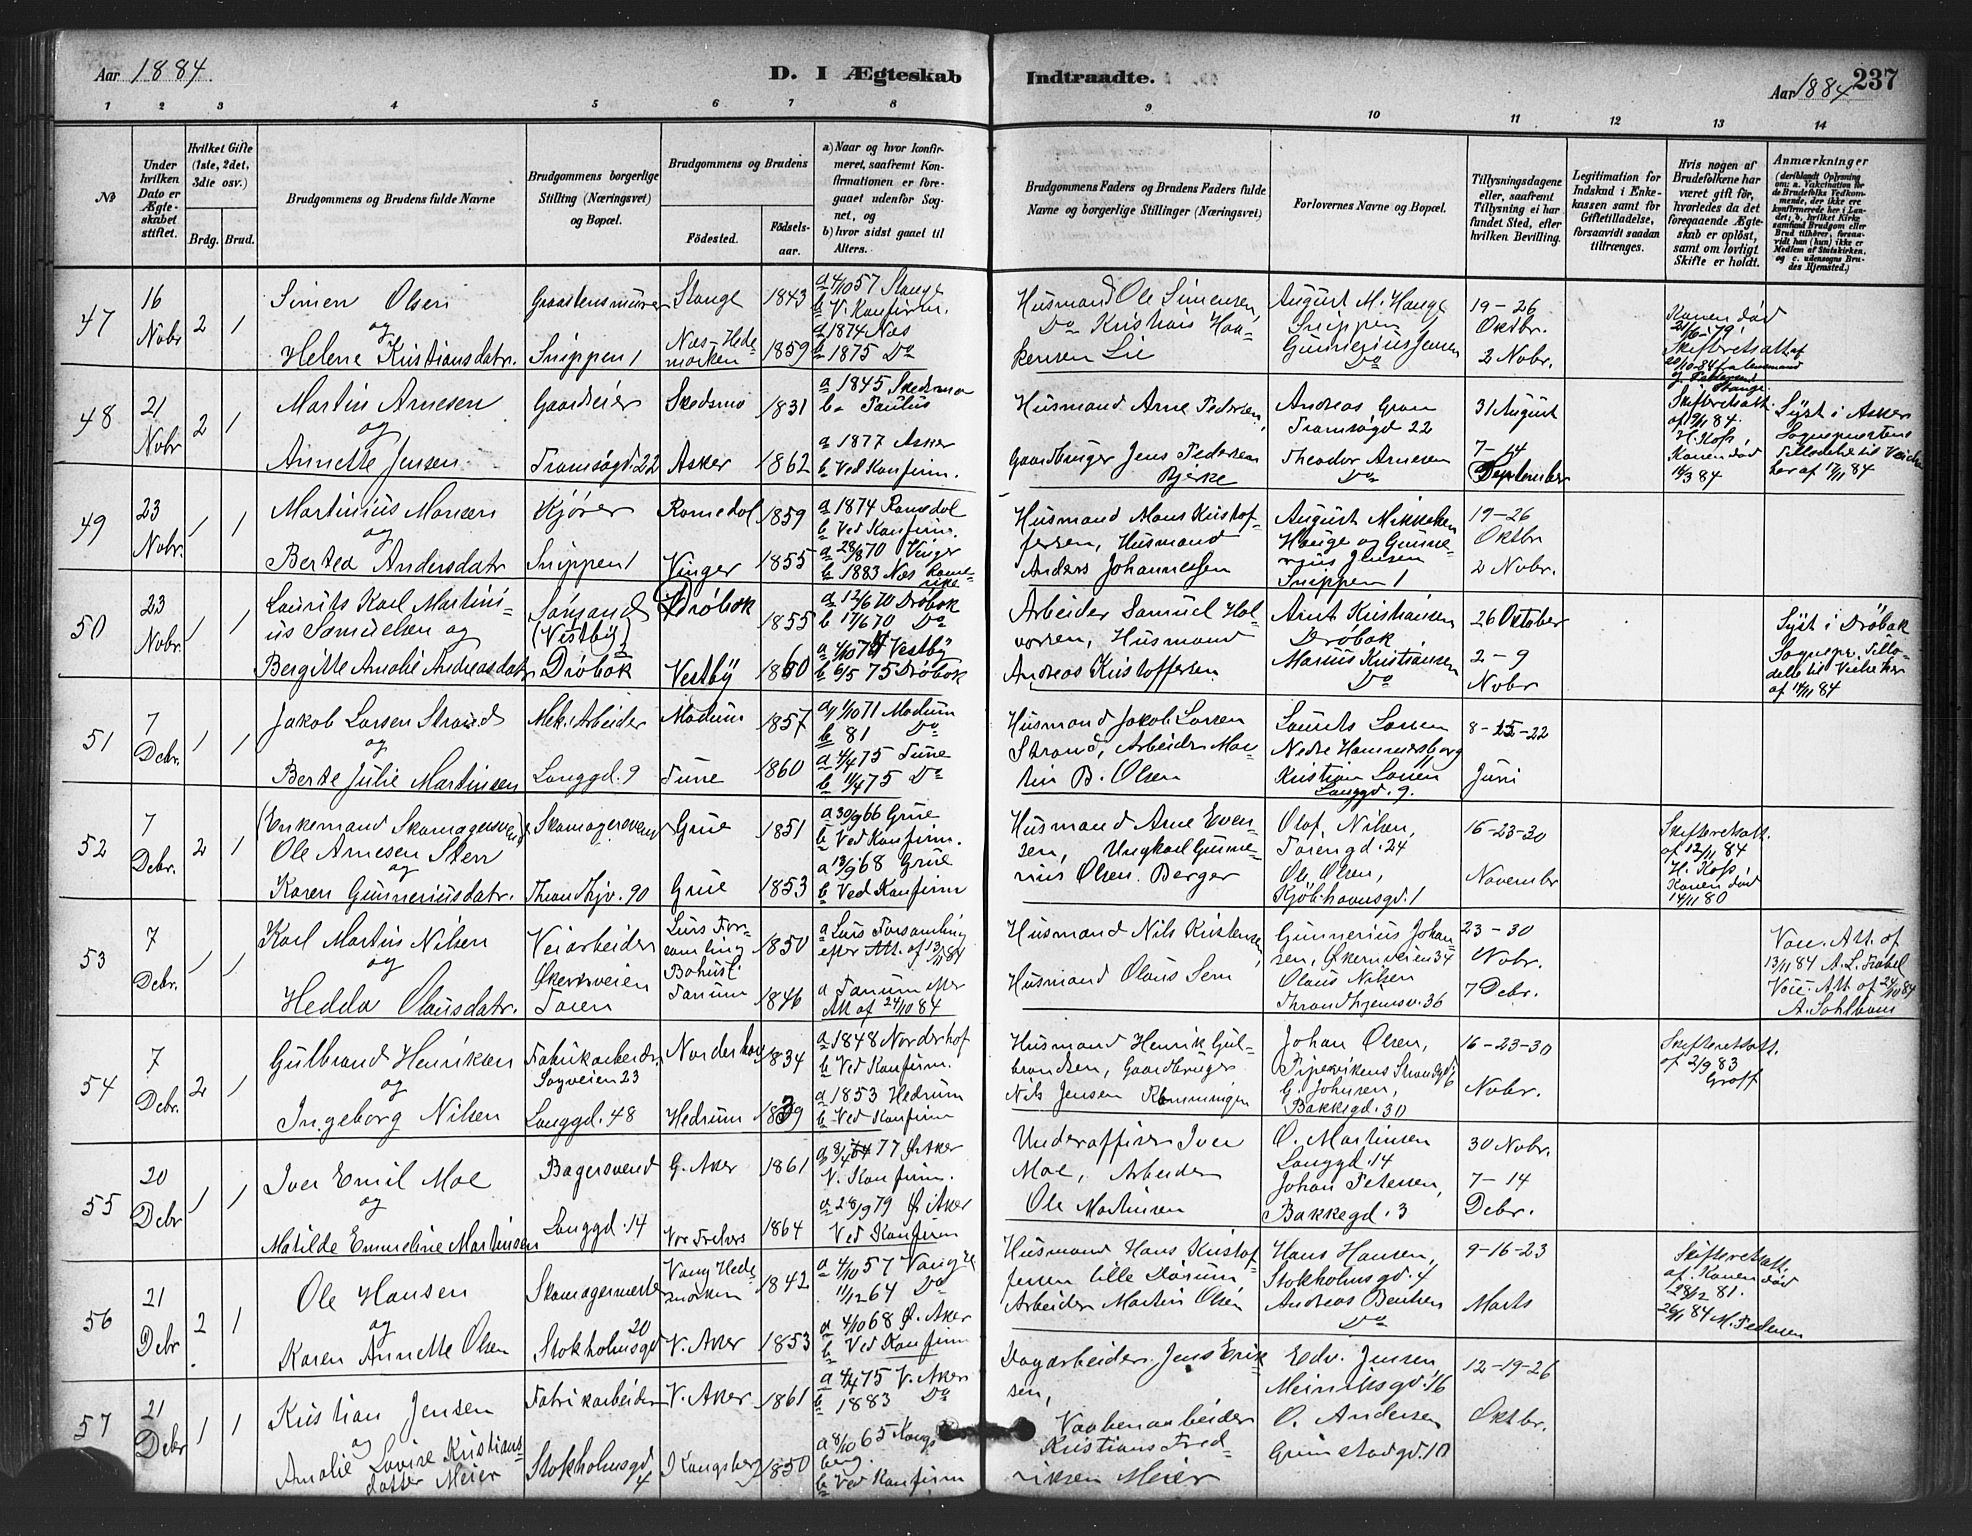 Aar 1884.
D. I Ægteskab
Indtraadte.
Aar 1884
237
1 2 3 4 5 6 7 8 9 10 11 12 13 14
№
Under hvilken Dato er Ægteskabet stiftet.
Hvilket Gifte (1ste, 2det, 3die osv.)
Brdg. Brud.
Brudgommens og Brudens fulde Navne
Brudgommens borgerlige Stilling (Næringsvei) og Bopæl.
Brudgommens og Brudens
Fødested.
Fødselsaar.
a) Naar og hvor konfirmeret, saafremt Konfirmationen er foregaaet udenfor Sognet, og
b) hvor sidst gaaet til Alters.
Brudgommens Faders og Brudens Faders fulde Navne og borgerlige Stillinger (Næringsvei)
Forlovernes Navne og Bopæl.
Tillysningsdagene eller, saafremt Tillysning ei har fundet Sted, efter hvilken Bevilling.
Legitimation for Indskud i Enkekassen samt for Giftetilladelse, forsaavidt saadan tiltrænges.
Hvis nogen af Brudefolkene har været gift før, hvorledes da det foregaaende Ægteskab er opløst, samt om lovligt Skifte er holdt.
Anmærkninger
47
16 Nobr
2 1
Simen Olsen
og
Helene Kristiansdatr.
Graastensmürer
Snippen 1
Stange
1843
Næs Hedemarken
1859
a 4/10 57 Stange
b V. Konfirm.
a 1874 Næs
b 1875 Do
Husmand Ole Simensen,
Do Kristian Haakensen Lie
August M. Hauge
Snippen 1
Gunnerius Jensen
Do
19-26
Oktbr.
2 Nobr.
Konen død
48
21 Nobr
2 1
Martin Arnesen
og
Annette Jensen
Gaardeier
Tromsøgd. 22
Skedsmo
1831
Asker
1862
a 1845 Skedsmo
b. Paulus
a 1877 Asker
b Ved Konfirm.
Husmand Arne Pedersen,
Gaardbruger Jens Pedersen
Bjerke
Andreas Gran
Tromsøgd 22
Theodor Arnesen
Do
31 August
7-14
September
Skifteretsatt.
af 19/11 84.
H. Koss
Konen død
14/3 84
Lyst i Asker
49
23 Nobr.
1 1
Martinius Monsen
og
Bertea Andersdatr
Kjører
Snippen 1
Romedal
1859
Vinger
1855
a 1874 Romedal
b Ved Konfirm.
a 28/8 70 Vinger
b 1883 Næs Romerike
Husmand Mons Kristoffersen, Husmand
Anders Johannessen
August Mikkelsen
Hauge og Gunnerius Jensen
Snippen 1
19-26
Oktbr
2 Nobr.
50
23 Nobr.
1 1
Laurits Karl Martinius Samuelsen og
Bergitte Amalie Andreasdatr
Sømand
(Vestby)
Drøbak
Drøbak
1855
Vestby
1860
a 12/6 70 Drøbak
b 17/6 70 Do
b 6/5 75 Drøbak
Arbeider Samuel Halvorsen, Husmand
Andreas Kristoffersen
Arnt Kristiansen
Drøbak
Marius Kristiansen
Do
26 Oktober
2-9
Nobr
Lyst i Drøbak
af 14/11 84
51
7 Debr.
1 1
Jakob Larsen Strand
og
Berte Julie Martinsen
Mek. Arbeider
Langgd. 9
Modum
1857
Tune
1860
a 1/10 71 Modum
b 81 Do
a 4/4 75 Tune
b 11/4 75 Do
Husmand Jakob Larsen
Strand, Arbeider Martin B. Olsen
Laurits Larsen
Nedre Hammersborg
Kristian Larsen
Langgd. 9.
8-15-22
Juni
52
7 Debr.
2 1
(Enkemand Skomagersvend)
Ole Arnesen Sten
og
Karen Gunneriusdatr.
Skomagersvend
Throndhjv. 90
Grue
1851
Grue
1853
a 30/9 66 Grue
b Ved Konfirm.
a 13/9 68 Grue
b Ved Konfirm
Husmand Arne Evensen, Ungkarl Gunnerius Olsen Berger
Olaf Nilsen,
Tøiengd. 24
Ole Olsen,
Kjøbhavnsgd. 1
16-23-30
November
Skifteretsatt.
af 12/11 84
H. Koss
Konen død
14/11 80
53
7 Debr.
1 1
Karl Martin Nilsen
og
Hedda Olausdatr.
Veiarbeider
Økernveien
Tøien
Lurs Forsamling
Bohusl.
1850
Tanum
1846
a Lurs Forsamling
efter Att. af 13/11 84
a Tanum efter
Att af 24/10 84
Husmand Nils Kristensen,
Husmand Olaus Sem
Gunnerius Johansen, Økernveien 34
Olaus Nilsen
Throndhjemsv. 36
23-30
Nobr.
7 Debr.
13/11 84
Att af 24/10 84
54
7 Debr.
2 1
Gulbrand Henriksen
og
Ingeborg Nilsen
Fabrikarbeider
Sagveien 23
Langgd. 48
Norderhov
1834
Hedrum
1839
a 1848 Norderhof
b Ved Konfirm.
a 1853 Hedrum
b Ved Konfirm
Husmand Henrik Gulbrandsen, Gaardbruger
Nils Jensen
Johan Olsen,
Pipervikens Strandgd. 6
G. Johnsen,
Bakkegd. 30
16-23-30
Nobr.
Skifteretsatt.
af 2/9 83
55
20 Debr
1 1
Iver Emil Moe
og
Matilde Emmeline Martinsen
Bagersvend
Langgd. 14
G. Aker
1861
Vor Frelsers
1864
77 Ø. Aker
V. Konfirm.
a 28/9 79 Ø. Aker
Ved Konfirm
Underofficer Iver
Moe, Arbeider
Ole Martinsen
O. Martinsen
Langgd. 14
Johan Petersen,
Bakkegd. 3
30 Nobr.
7-14
Debr.
56
21 Debr
2 1
Ole Hansen
og
Karen Annette Olsen
Skomagermester
Stokholmsgd 20
Vang Hedemarken
1842
V. Aker
1853
a 4/10 57 Vang
11/12 64 Do
a 4/10 68 Ø. Aker
b Ved Konfirm
Husmand Hans Kristoffersen lille
Arbeider Martin Olsen
Hans Hansen,
Stokholmsgd. 4
Andreas
Do
9-16-23
Marts
Skifteretsatt.
af. Konen død
28/12 81.
26/11 84 M. Pedersen
57
21 Debr
1 1
Kristian Jensen
og
Amalie Lovise Kristiansdatter Meier
Fabrikarbeider
Stokholmsgd 4
V. Aker
1861
Kongsberg
1850
a 4/4 75 V. Aker
b 1883 Do
a 8/10 65 Kongsberg
b Ved Konfirm
Dagarbeider Jens Eriksen,
Vaabenarbeider
Kristians Fredriksen Meier
Edv. Jensen
Meiniksgd. 16
O. Andersen
Grimstadgd. 10
12-19-26
Oktbr.